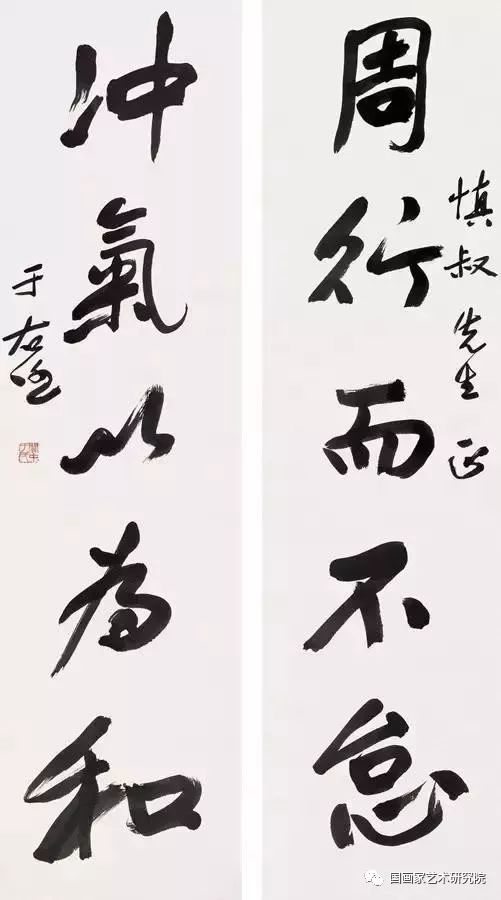 慎叔先生正
周行而不怠
冲氣以為和
于右任
国画家艺术研究院